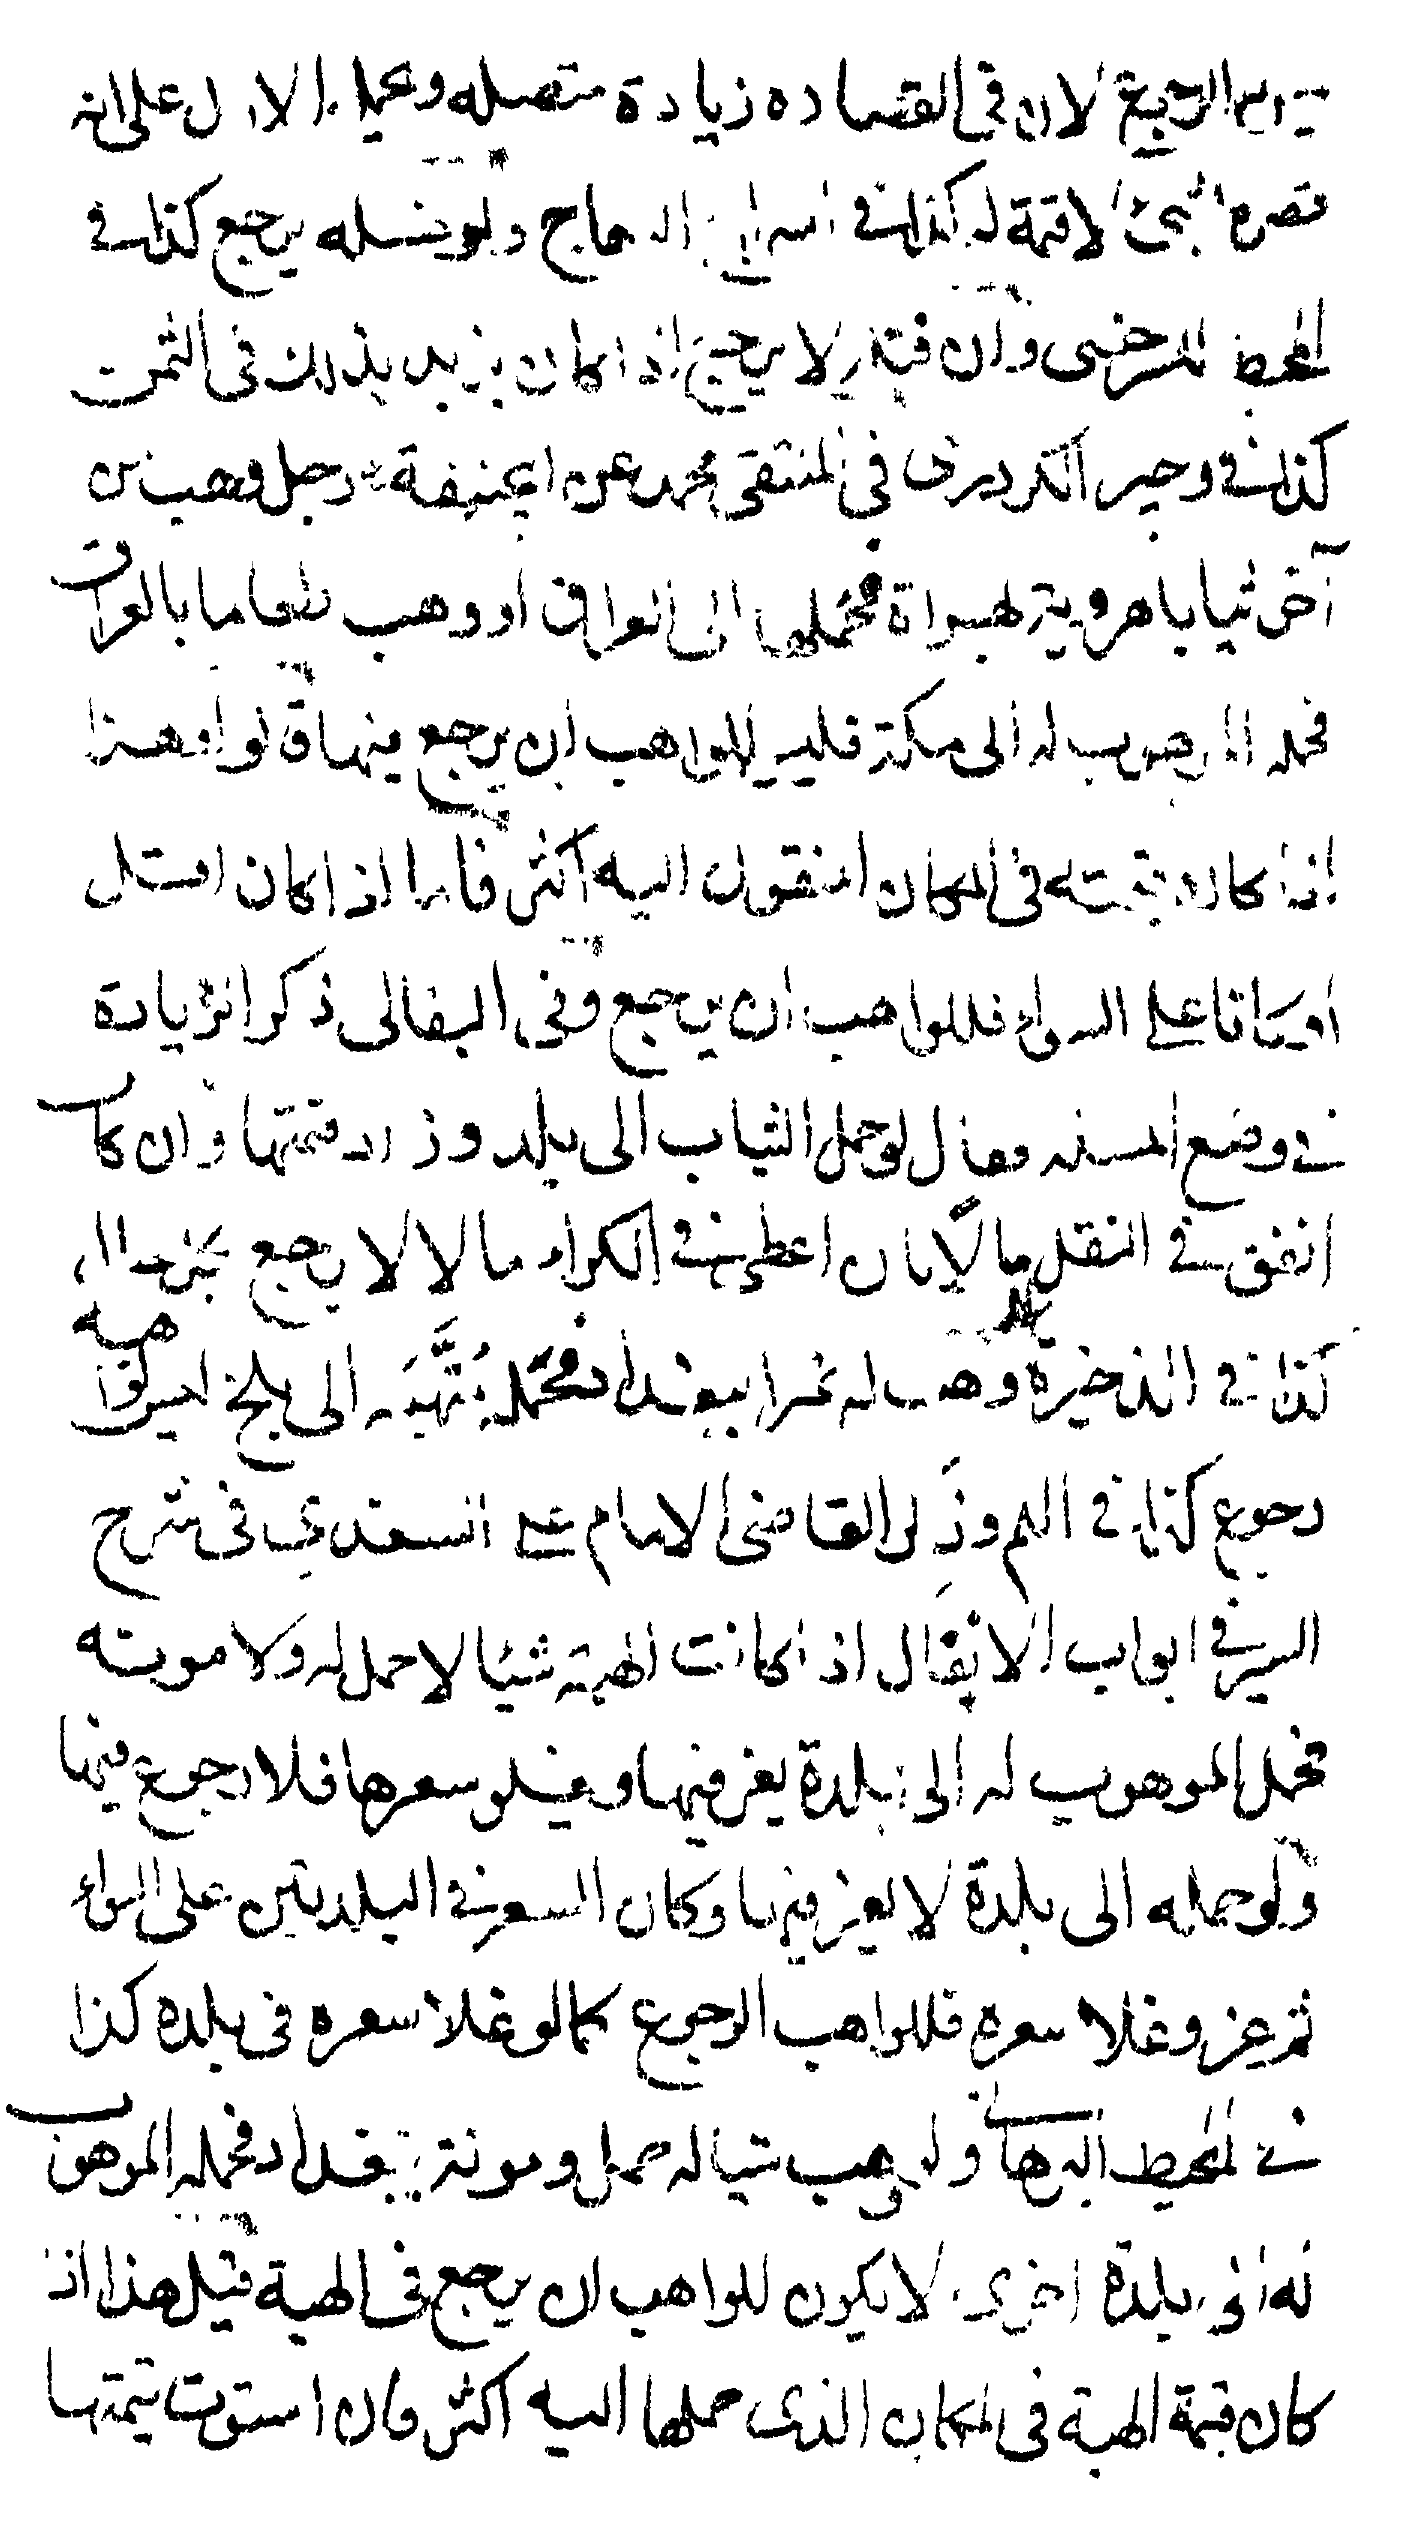 الرجوع لان في القصاده زيادة متصله وعمل الاول على انه
قصره لا قيمة له كذا في السراج الوهاج ولو غسله يرجع كذا في
المحيط السرخسى وان فتله لا يرجع اذا كان يزيد بذلك في الثمن
كذا في وجيز الكردرى في المنتقى محمد عن ابيحنيفة رجل وهب من
آخر ثيابا هروية بهراة فحملها الى العراق او وهب طعاما بالعراق
فحمله الموهوب له الى مكة فليس للواهب ان يرجع فيها قالوا وهذا
اذا كان قيمته في المكان المنقول اليه اكثر فاما اذا كان اقل
او كانا على السواء فللواهب ان يرجع وفى البقالى ذكر الزيادة
في وضع المسئلة فقال لو حمل الثياب الى بلد وزاد قيمتها وان كان
انفق في النقل مالا بان اعطى في الكراء مالا لا يرجع
كذا في الذخيرة وهب له تمرا ببغداد فحمله مُتَّهِبُه الى بلخ ليس لواهبه
رجوع كذا في وذكر القاضى الامام على السغدي في شرح
السير في ابواب الانفال اذا كانت الهبة شيئا لا حمل له ولا مونة
فحمل الموهوب له الى بلدة يعز فيها ويغلو سعرها فلا رجوع فيها
ولو حمله الى بلدة لا يعز فيها وكان السعر في البلدتين على السواء
ثم عز وغلا سعره فللواهب الرجوع كما لو غلا سعره في بلده كذا
في المحيط البرهاني ولو وهب شيا له حمل ومونة ببغداد فحمله الموهوب
له الى بلدة اخرى لا يكون للواهب ان يرجع في الهبة قيل هذا اذا
كان قيمة الهبة في المكان الذى حملها اليه اكثر فان استوت قيمتها